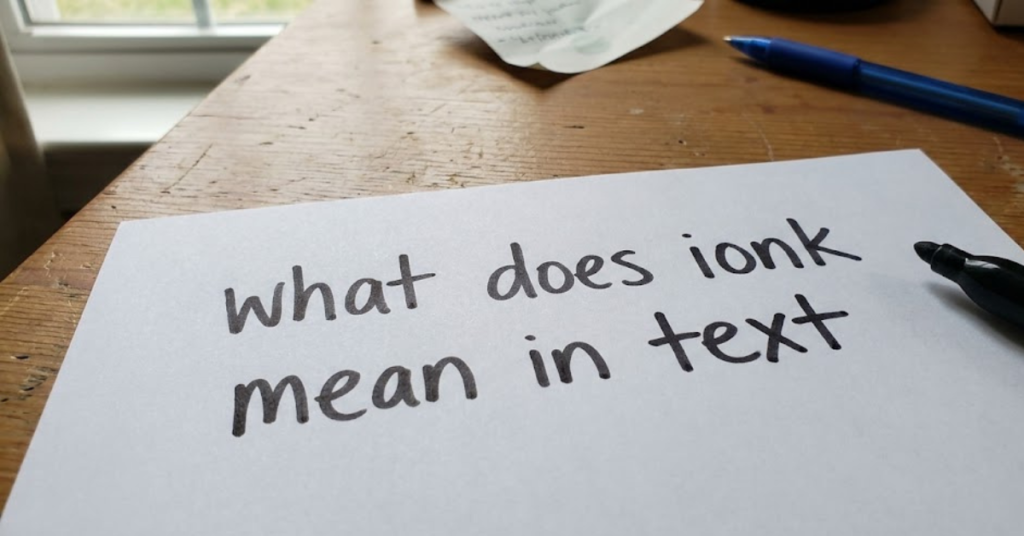 what does ionk
mean in text